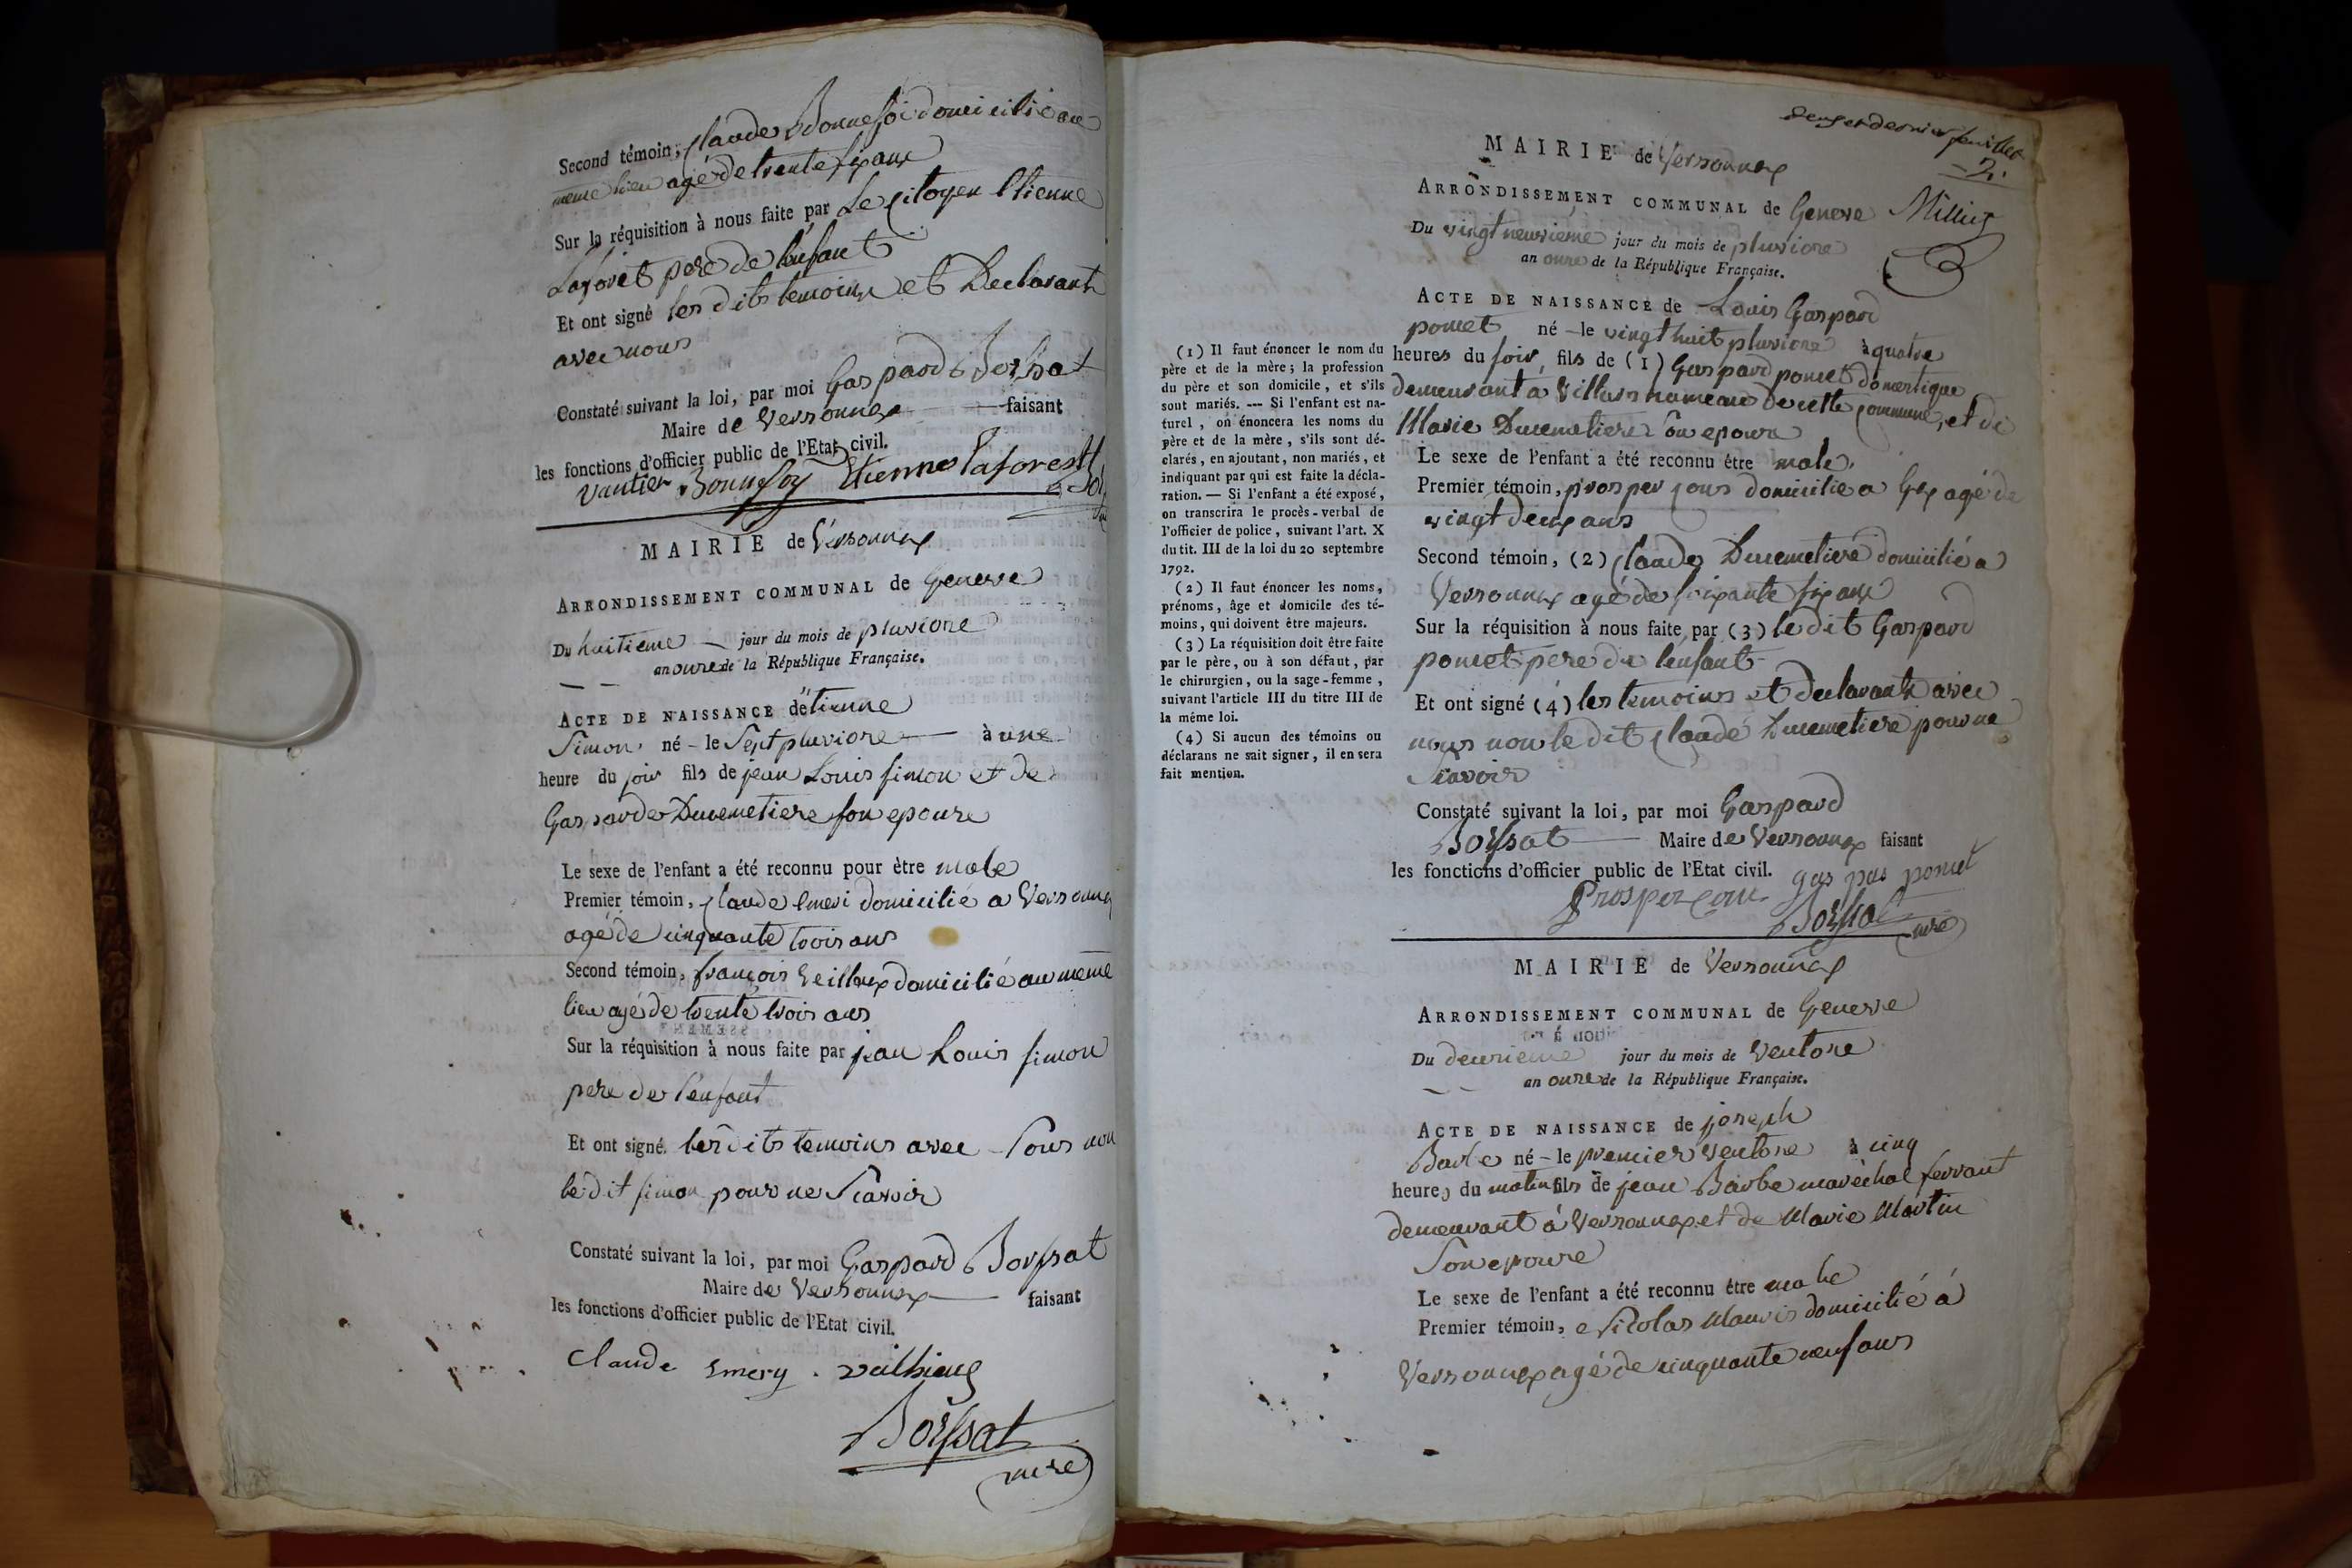 Second témoin, Claude Bonnefoi domicilié au
meme lieu agé de trente six ans
Sur la réquisition à nous faite par Le Citoyen Etienne
Laforêt pere de l'enfant
Et ont signé les dits temoins et Declarants
avec nous
Constaté suivant la loi, par moi Gaspard Boissat
Maire de Versonnex faisant
les fonctions d'officier public de l'Etat civil.
Vautier Bonnefoy Etienne laforest
MAIRIE de Versonnex
ARRONDISSEMENT COMMUNAL de Geneve
Du huitieme jour du mois de pluviose
an onze de la République Française.
ACTE DE NAISSANCE d'étienne
Simon né le Sept pluviose à une
heure du soir fils de jean Louis simon et de
Gasparde Ducemetiere son epouse
Le sexe de l'enfant a été reconnu pour être male
Premier témoin, Claude Emeri domicilié a Versonnex
agé de cinquante trois ans
Second témoin, françois domicilié au meme
lieu agé de trente trois ans
Sur la réquisition à nous faite par jean Louis simon
pere de l'enfant
Et ont signé les dits temoins avec nous non
le dit simon pour ne Scavoir
Constaté suivant la loi, par moi Gaspard Boissat
Maire de Versonnex faisant
les fonctions d'officier public de l'Etat civil.
Claude Emery .
Boissat
mre
deux et dernier feuillet
2.
MAIRIE de Versonnex
ARRONDISSEMENT COMMUNAL de Geneve
Du vingt neuvieme jour du mois de pluviose
an onze de la République Française.
ACTE DE NAISSANCE de Louis Gaspard
pomet né le vingt huit pluviose à quatre
heures du soir, fils de (1) Gaspard pomet domestique
demeurant à Villars hameau de cette commune, et de
Marie Ducemetiere son epouse
Le sexe de l'enfant a été reconnu être male.
Premier témoin, prosper domicilié a Gex agé de
vingt deux ans
Second témoin, (2) Claude Ducemetiere domicilié a
Versonnex agé de soixante six ans
Sur la réquisition à nous faite par (3) le dit Gaspard
pomet pere de l'enfant
Et ont signé (4) les temoins et declarants avec
nous non le dit Claude Ducemetiere pour ne
Scavoir
Constaté suivant la loi, par moi Gaspard
Boissat Maire de Versonnex faisant
les fonctions d'officier public de l'Etat civil.
gas par pomet
Prosper
Boissat
mre
(1) Il faut énoncer le nom du
père et de la mère ; la profession
du père et son domicile, et s'ils
sont mariés. --- Si l'enfant est na-
turel, on énoncera les noms du
père et de la mère, s'ils sont dé-
clarés, en ajoutant, non mariés, et
indiquant par qui est faite la décla-
ration. — Si l'enfant a été exposé,
on transcrira le procès-verbal de
l'officier de police, suivant l'art. X
du tit. III de la loi du 20 septembre
1792.
(2) Il faut énoncer les noms,
prénoms, âge et domicile des té-
moins, qui doivent être majeurs.
(3) La réquisition doit être faite
par le père, ou à son défaut, par
le chirurgien, ou la sage-femme,
suivant l'article III du titre III de
la même loi.
(4) Si aucun des témoins ou
déclarans ne sait signer, il en sera
fait mention.
MAIRIE de Versonnex
ARRONDISSEMENT COMMUNAL de Geneve
Du deuxieme jour du mois de Ventose
an onze de la République Française.
ACTE DE NAISSANCE de joseph
Barbe né le premier Ventose à cinq
heures du matin fils de jean Barbe maréchal ferrant
demeurant à Versonnex et de Marie Martin
Son epouse
Le sexe de l'enfant a été reconnu être male
Premier témoin, Nicolas domicilié à
Versonnex agé de cinquante neuf ans